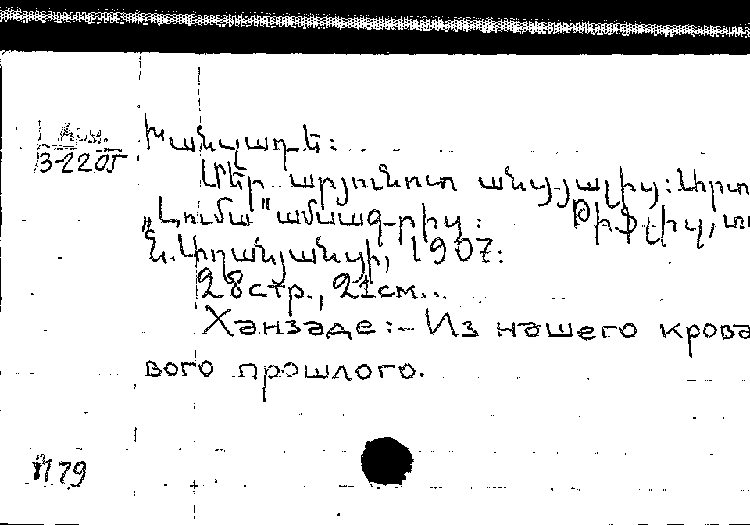 3-2205
Խանզադե:
Մեր արյունոտ անցյալից: Արտ
„Լումա" ամսագրից: Թիֆլիս, տ
Ն. Աղանյանցի, 1907:
28 стр., 21 см..
Ханзаде:- Из нашего крова
вого прошлого.
П 79